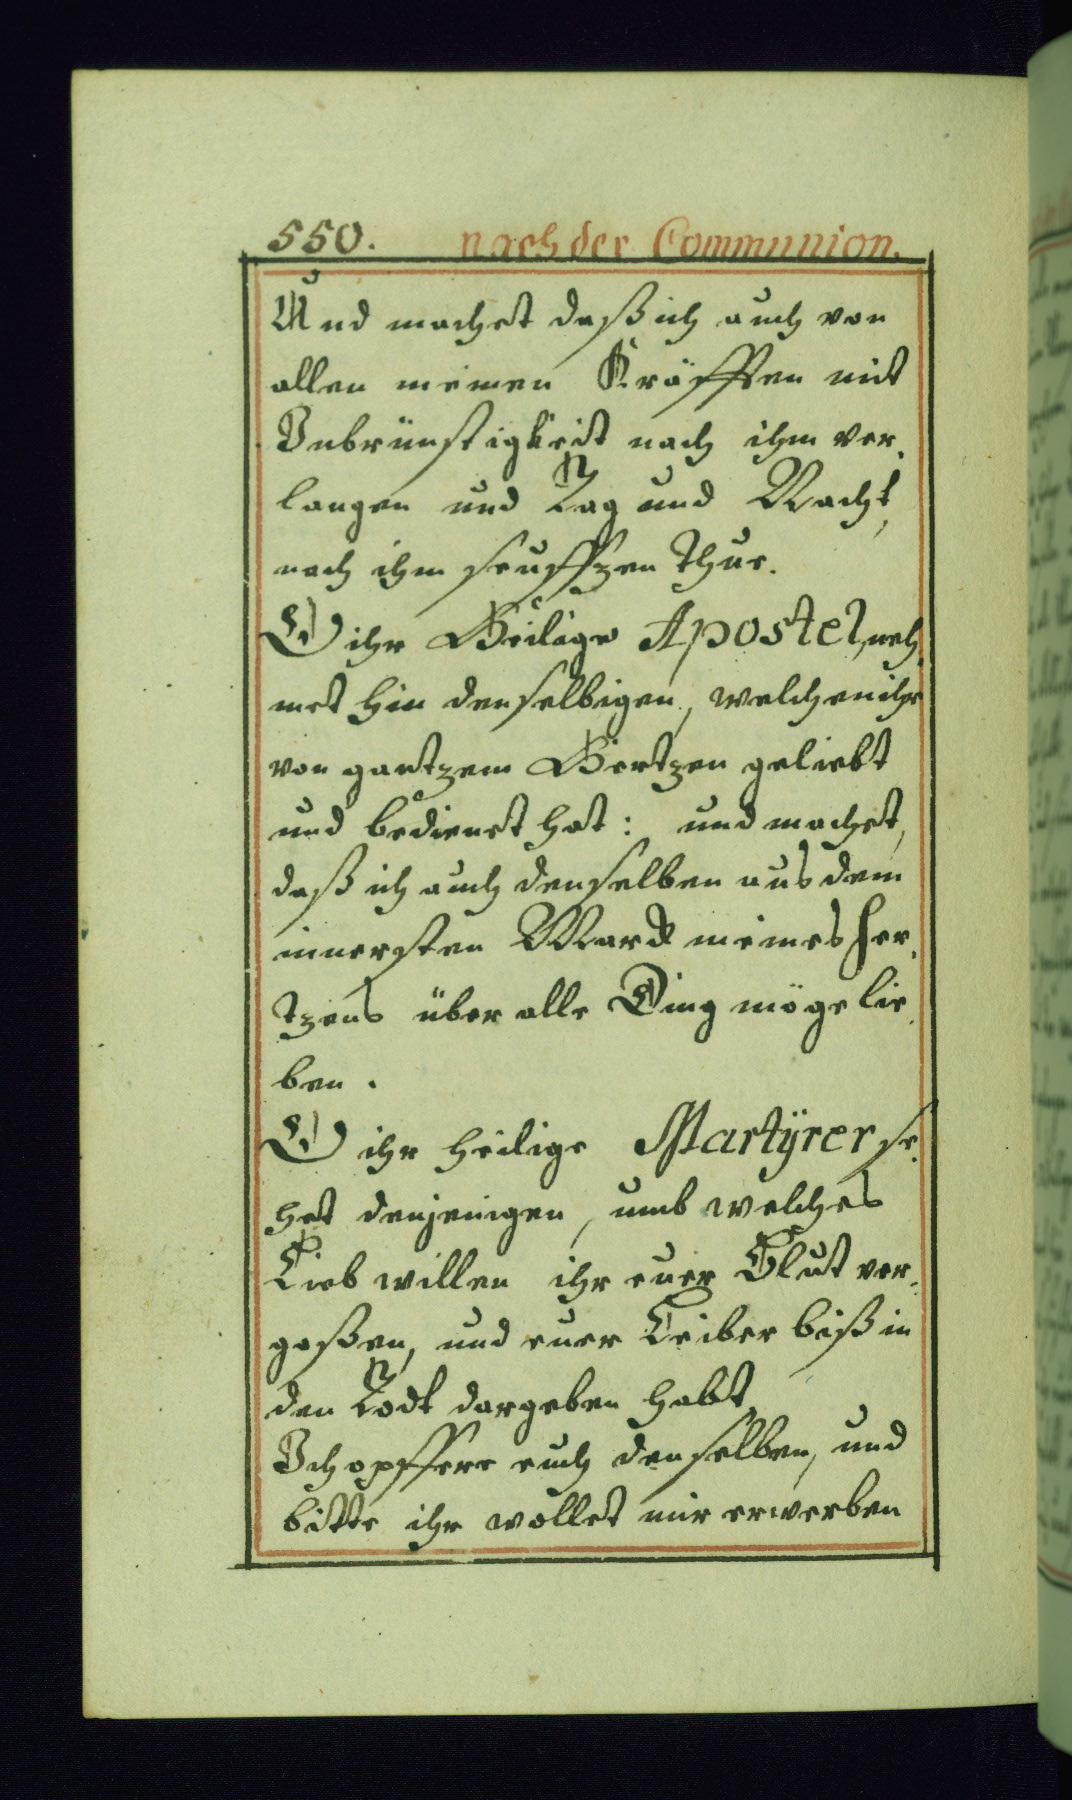 550. nach der Communion.
Und machet daß ich auch von
allen meinen Kräfften mit
Inbrünstigkeit nach ihm ver,
langen und Tag und Nacht,
nach ihm seuffzen thue.
O ihr Heilige Apostel, neh,
met hin denselbigen, welchen ihr
von gantzem Hertzen geliebt
und bedienet hat: und machet,
daß ich auch denselben aus dem
innersten Marck meines Her,
tzens über alle Ding möge lie,
ben.
O ihr heilige Martÿrer se,
het denjenigen, umb welches
Lieb willen ihr euer Blut ver,
goßen, und euer Leiber biß in
den Todt dargeben habt,
Ich opffere euch denselben, und
bitte ihr wollet mir erwerben